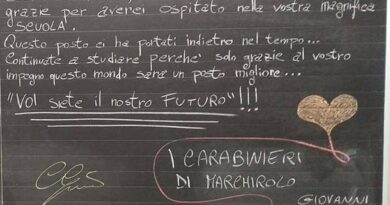 grazie per averci ospitato nella vostra magnifica
SCUOLA.
Questo posto ci ha portati indietro nel tempo...
Continuate a studiare perche' solo grazie al vostro
impegno questo mondo sarà un posto migliore...
"VOI SIETE IL NOSTRO FUTURO"!!!
I CARABINIERI
DI MARCHIROLO
GIOVANNI